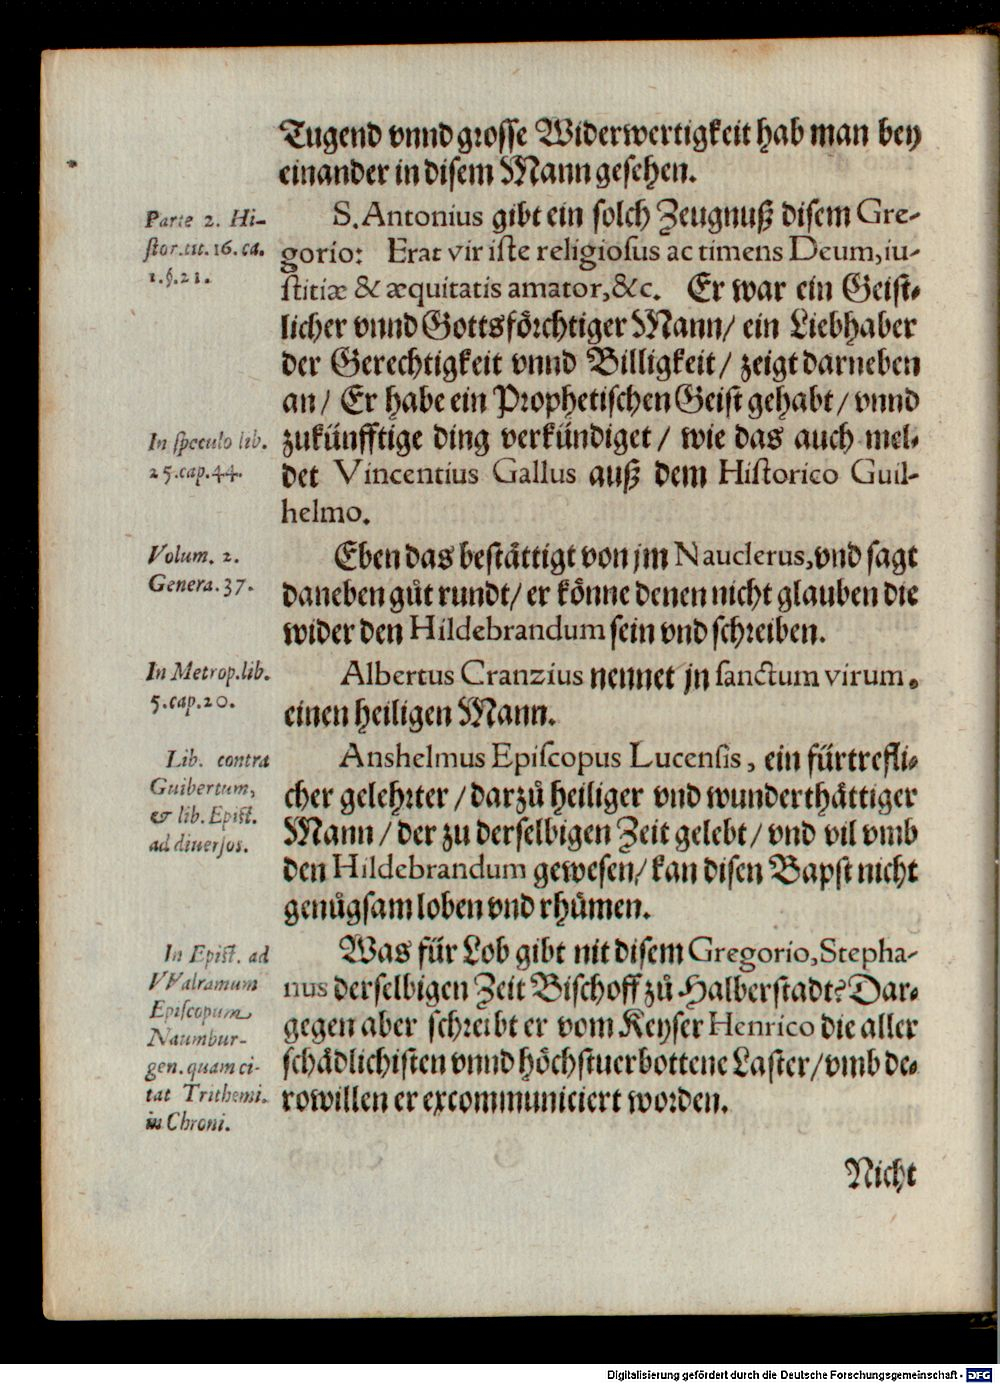 Tugend vnnd grosse Widerwertigkeit hab man bey
einander in disem Mann gesehen.
Parte 2. Hi-
stor. tit. 16. ca.
1. §. 21.
S. Antonius gibt ein solch Zeugnuß disem Gre-
gorio: Erat vir iste religiosus ac timens Deum, iu-
stitiæ & æquitatis amator, &c. Er war ein Geist-
licher vnnd Gottsförchtiger Mann/ ein Liebhaber
der Gerechtigkeit vnnd Billigkeit/ zeigt darneben
an/ Er habe ein Prophetischen Geist gehabt/ vnnd
In speculo lib.
25. cap. 44.
zukünfftige ding verkündiget/ wie das auch mel-
det Vincentius Gallus auß dem Historico Guil-
helmo.
Volum. 2.
Genera. 37.
Eben das bestättigt von jm Nauclerus, vnd sagt
daneben gůt rundt/ er könne denen nicht glauben die
wider den Hildebrandum sein vnd schreiben.
In Metrop. lib.
5. cap. 20.
Albertus Cranzius nennet jn sanctum virum.
einen heiligen Mann.
Lib. contra
Guibertum,
& lib. Epist.
ad diuersos.
Anshelmus Episcopus Lucensis, ein fürtrefli-
cher gelehrter/ darzů heiliger vnd wunderthättiger
Mann/ der zu derselbigen Zeit gelebt/ vnd vil vmb
den Hildebrandum gewesen/ kan disen Bapst nicht
genůgsam loben vnd rhůmen.
In Epist. ad
VValramum
Episcopum
Naumbur-
gen. quam ci-
tat Trithemi.
in Chroni.
Was für Lob gibt nit disem Gregorio, Stepha-
nus derselbigen Zeit Bischoff zů Halberstadt? Dar-
gegen aber schreibt er vom Keyser Henrico die aller
schädlichisten vnnd höchstuerbottene Laster/ vmb de-
rowillen er excommuniciert worden.
Nicht
Digitalisierung gefördert durch die Deutsche Forschungsgemeinschaft - DFG